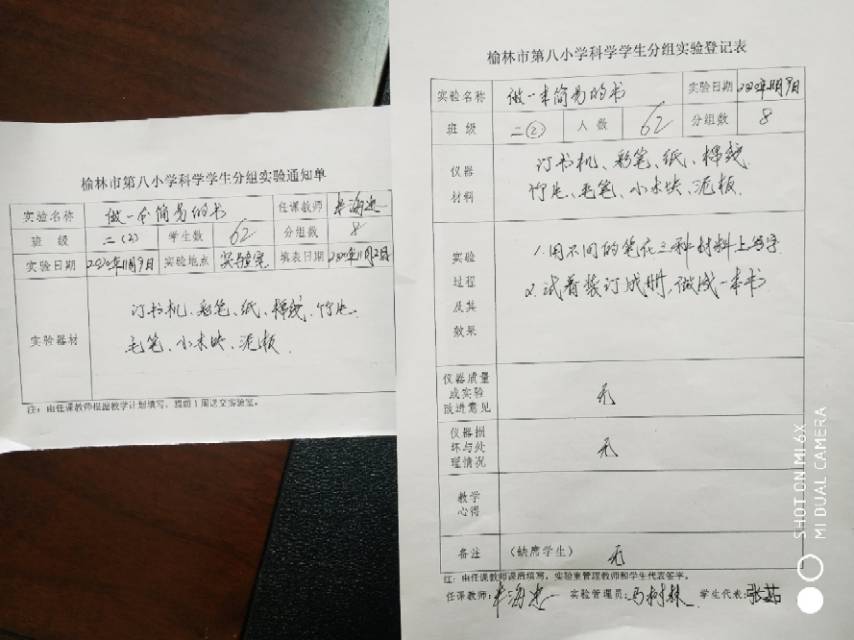 榆林市第八小学科学学生分组实验通知单
实验名称 做一本简易的书 任课教师
班级 二(2) 学生数 62 分组数 8
实验日期 2020年11月9日 实验地点 实验室 填表日期 2020年11月2日
实验器材
订书机、彩笔、纸、棉线、竹片、
毛笔、小木块、泥板
注:由任课教师根据教学计划填写,提前1周送交实验室。
榆林市第八小学科学学生分组实验登记表
实验名称 做一本简易的书 实验日期 2020年11月9日
班级 二(2) 人数 62 分组数 8
仪器材料
订书机、彩笔、纸、棉线
竹片、毛笔、小木块、泥板
实验过程及其效果
1.用不同的笔在三种材料上写字
2.试着装订成册,做成一本书
仪器质量或实验改进意见 无
仪器损坏与处理情况 无
教学心得
备注 (缺席学生) 无
注:由任课教师课后填写,实验室管理教师和学生代表签字。
任课教师: 实验管理员: 学生代表:张茹
SHOT ON MI 6X
MI DUAL CAMERA